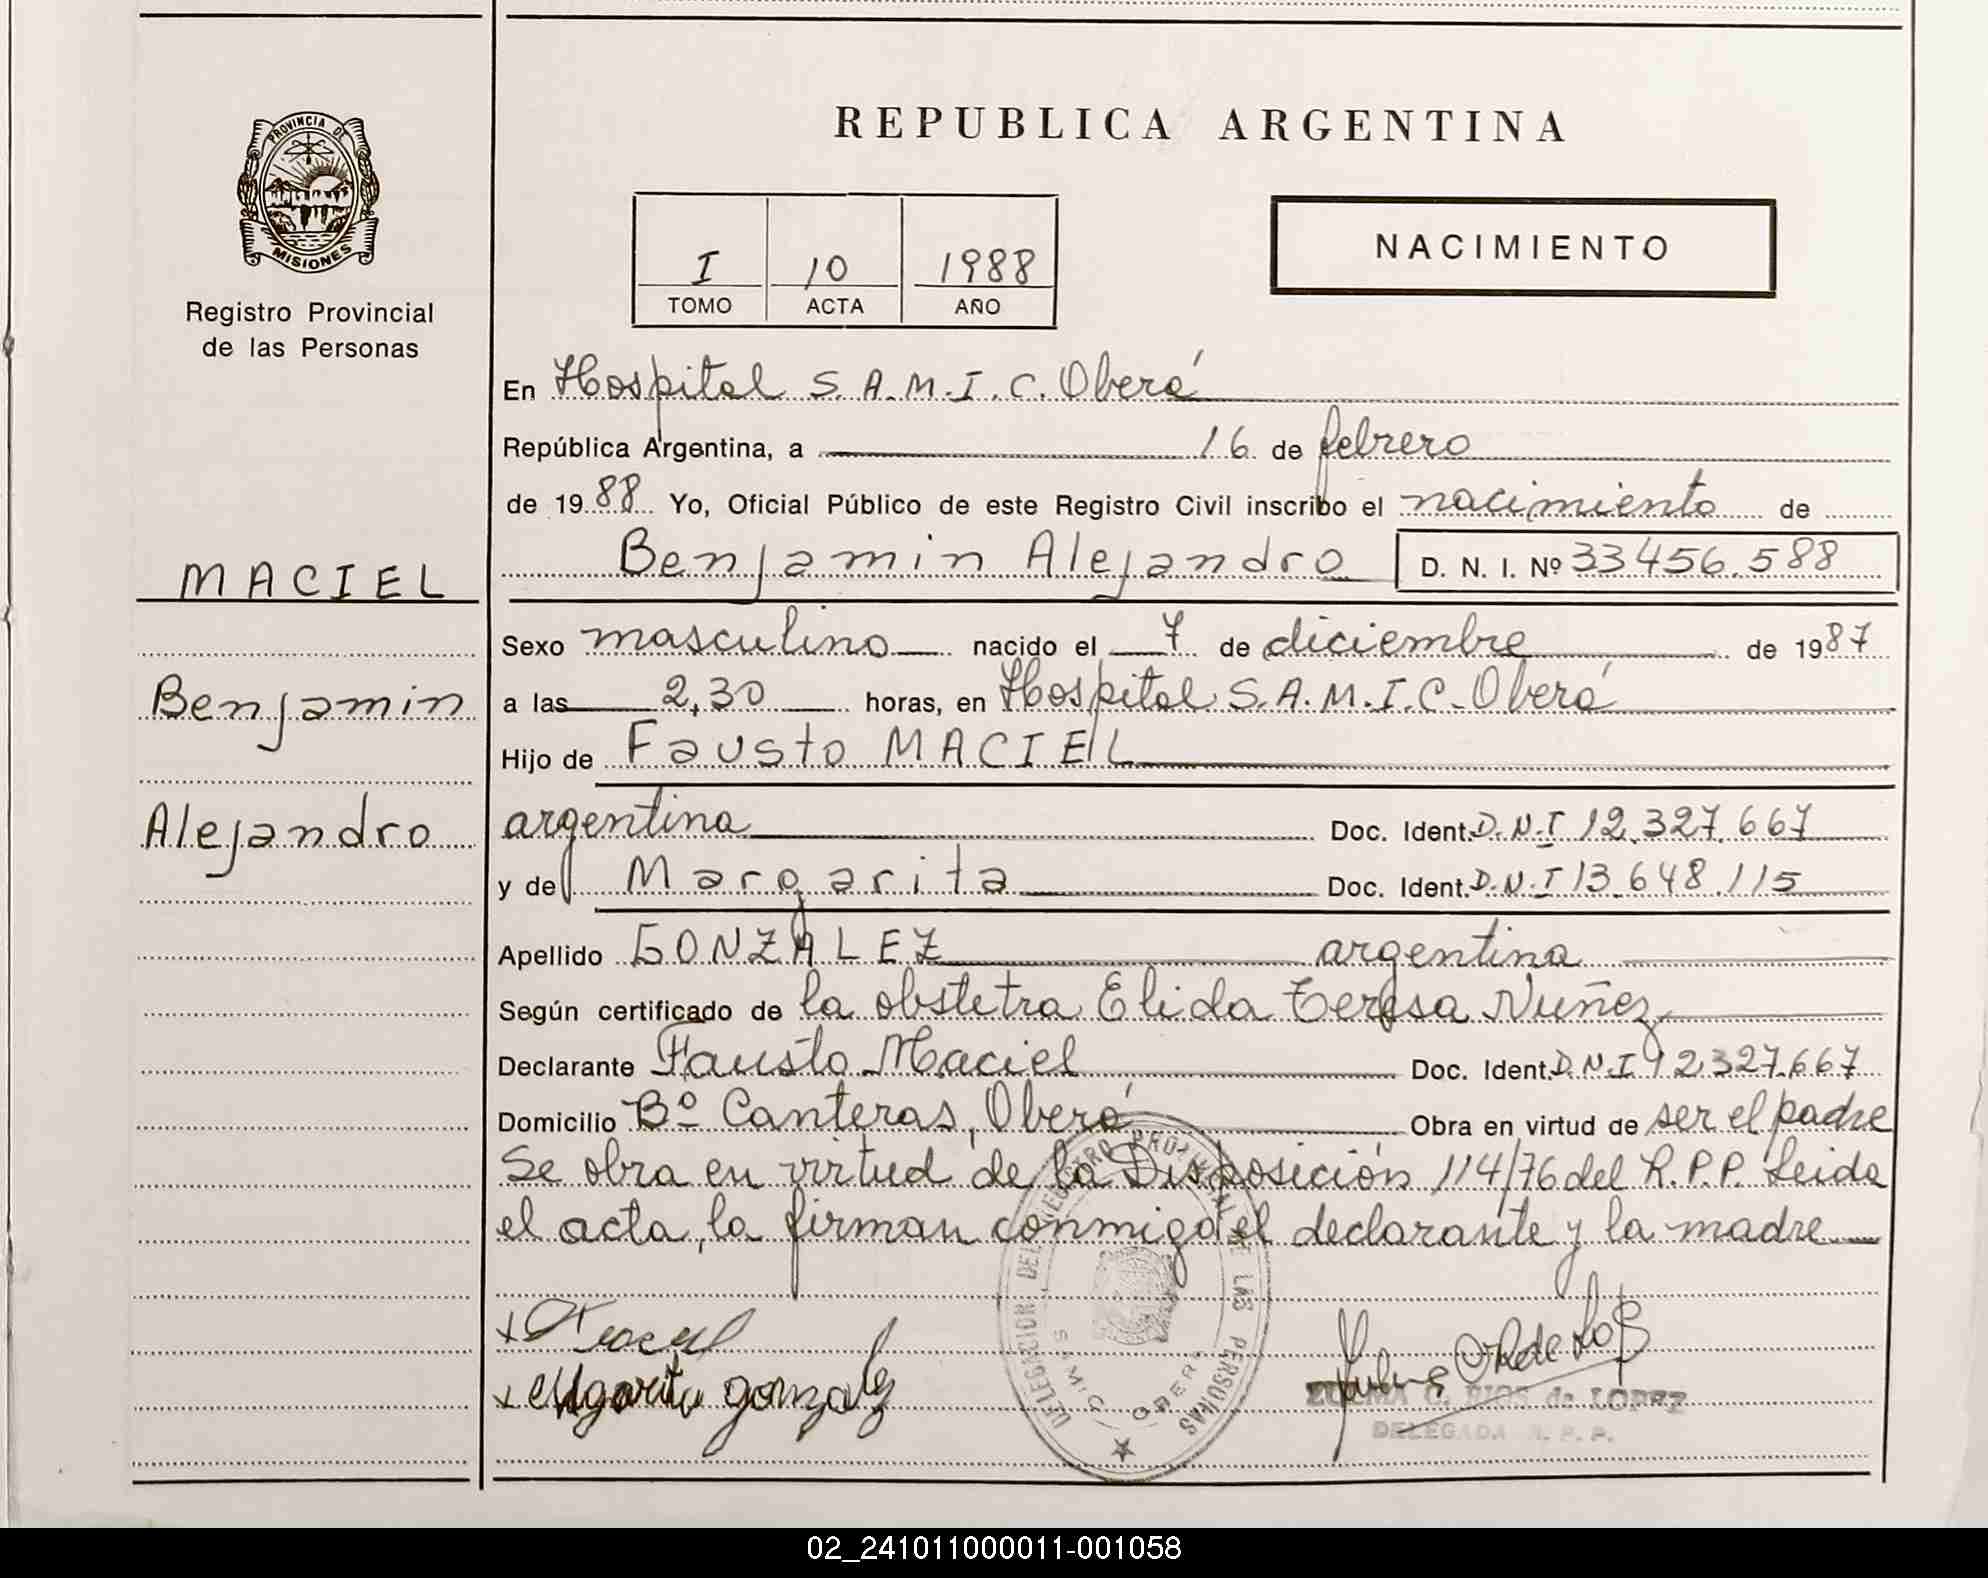 REPUBLICA ARGENTINA
PROVINCIA DE
MISIONES
Registro Provincial
de las Personas
I 10 1988
TOMO ACTA AÑO
NACIMIENTO
En Hospital S.A.M.I.C. Oberá
República Argentina, a 16 de febrero
de 1988 Yo, Oficial Público de este Registro Civil inscribo el nacimiento de
Benjamin Alejandro D. N. I. Nº 33456.588
MACIEL
Benjamin
Alejandro
Sexo masculino nacido el 7 de diciembre de 1987
a las 2,30 horas, en Hospital S.A.M.I.C. Oberá
Hijo de Fausto MACIEL
argentina Doc. Ident. D.N.I 12.327.667
y de Margarita Doc. Ident. D.N.I 13.648.115
Apellido GONZALEZ argentina
Según certificado de la obstetra Elida Teresa Nuñez
Declarante Fausto Maciel Doc. Ident. D.N.I 12.327.667
Domicilio Bº Canteras, Oberá Obra en virtud de ser el padre
Se obra en virtud de la Disposición 114/76 del R.P.P. Leida
el acta, la firman conmigo el declarante y la madre
DELEGACION DEL REGISTRO PROVINCIAL DE LAS PERSONAS
SAMIC OBERA
gonzalez
ZULMA C. RIOS de LOPEZ
DELEGADA R. P. P.
02_241011000011-001058